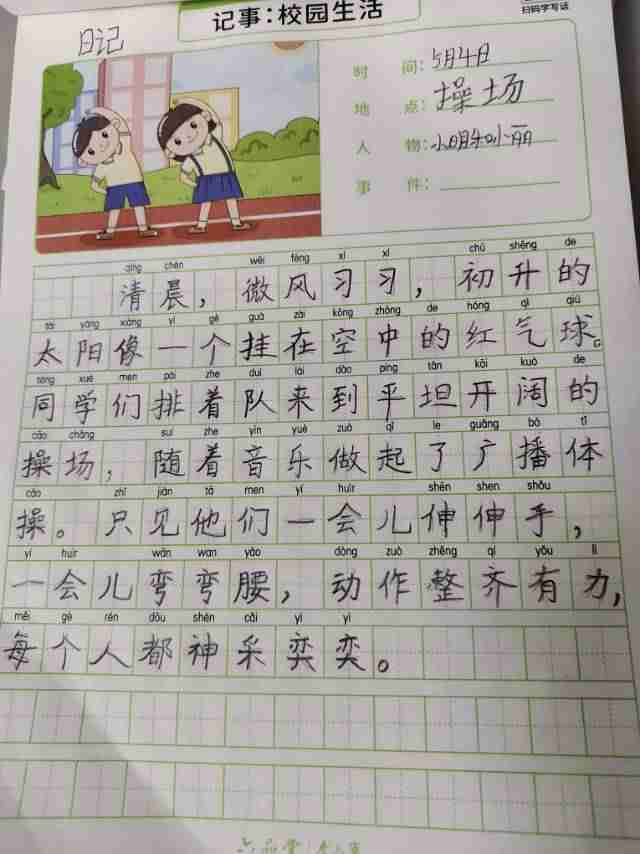 扫码学写话
记事:校园生活
日记
时 间: 5月4日
地 点: 操场
人 物: 小明和小丽
事 件:
qīng chén wēi fēng xí xí chū shēng de
清晨，微风习习，初升的
tài yáng xiàng yí gè guà zài kōng zhōng de hóng qì qiú
太阳像一个挂在空中的红气球。
tóng xué men pái zhe duì lái dào píng tǎn kāi kuò de
同学们排着队来到平坦开阔的
cāo chǎng suí zhe yīn yuè zuò qǐ le guǎng bō tǐ
操场，随着音乐做起了广播体
cāo zhǐ jiàn tā men yí huìr shēn shen shǒu
操。只见他们一会儿伸伸手，
yí huìr wān wan yāo dòng zuò zhěng qí yǒu lì
一会儿弯弯腰，动作整齐有力，
měi gè rén dōu shén cǎi yì yì
每个人都神采奕奕。
六品堂